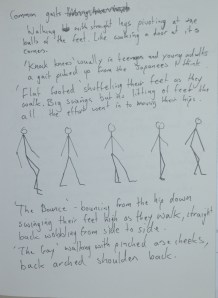 Common gaits
Walking with straight legs pivoting at the
balls of the feet. Like walking a door at its
corners.
'Knock knees' usually is teenagers and young adults
a gait picked up from the Japanese I think
'Flat footed' shuffeling their feet as they
walk. Big swings but no lifting of feet the
all the effort went is to moving their hips.
'The Bounce' - bouncing from the hip down
swinging their feet high as they walk, straight
back wobbling from side to side.
'The Guy' walking with pinched arse cheeks,
back arched shoulders back.